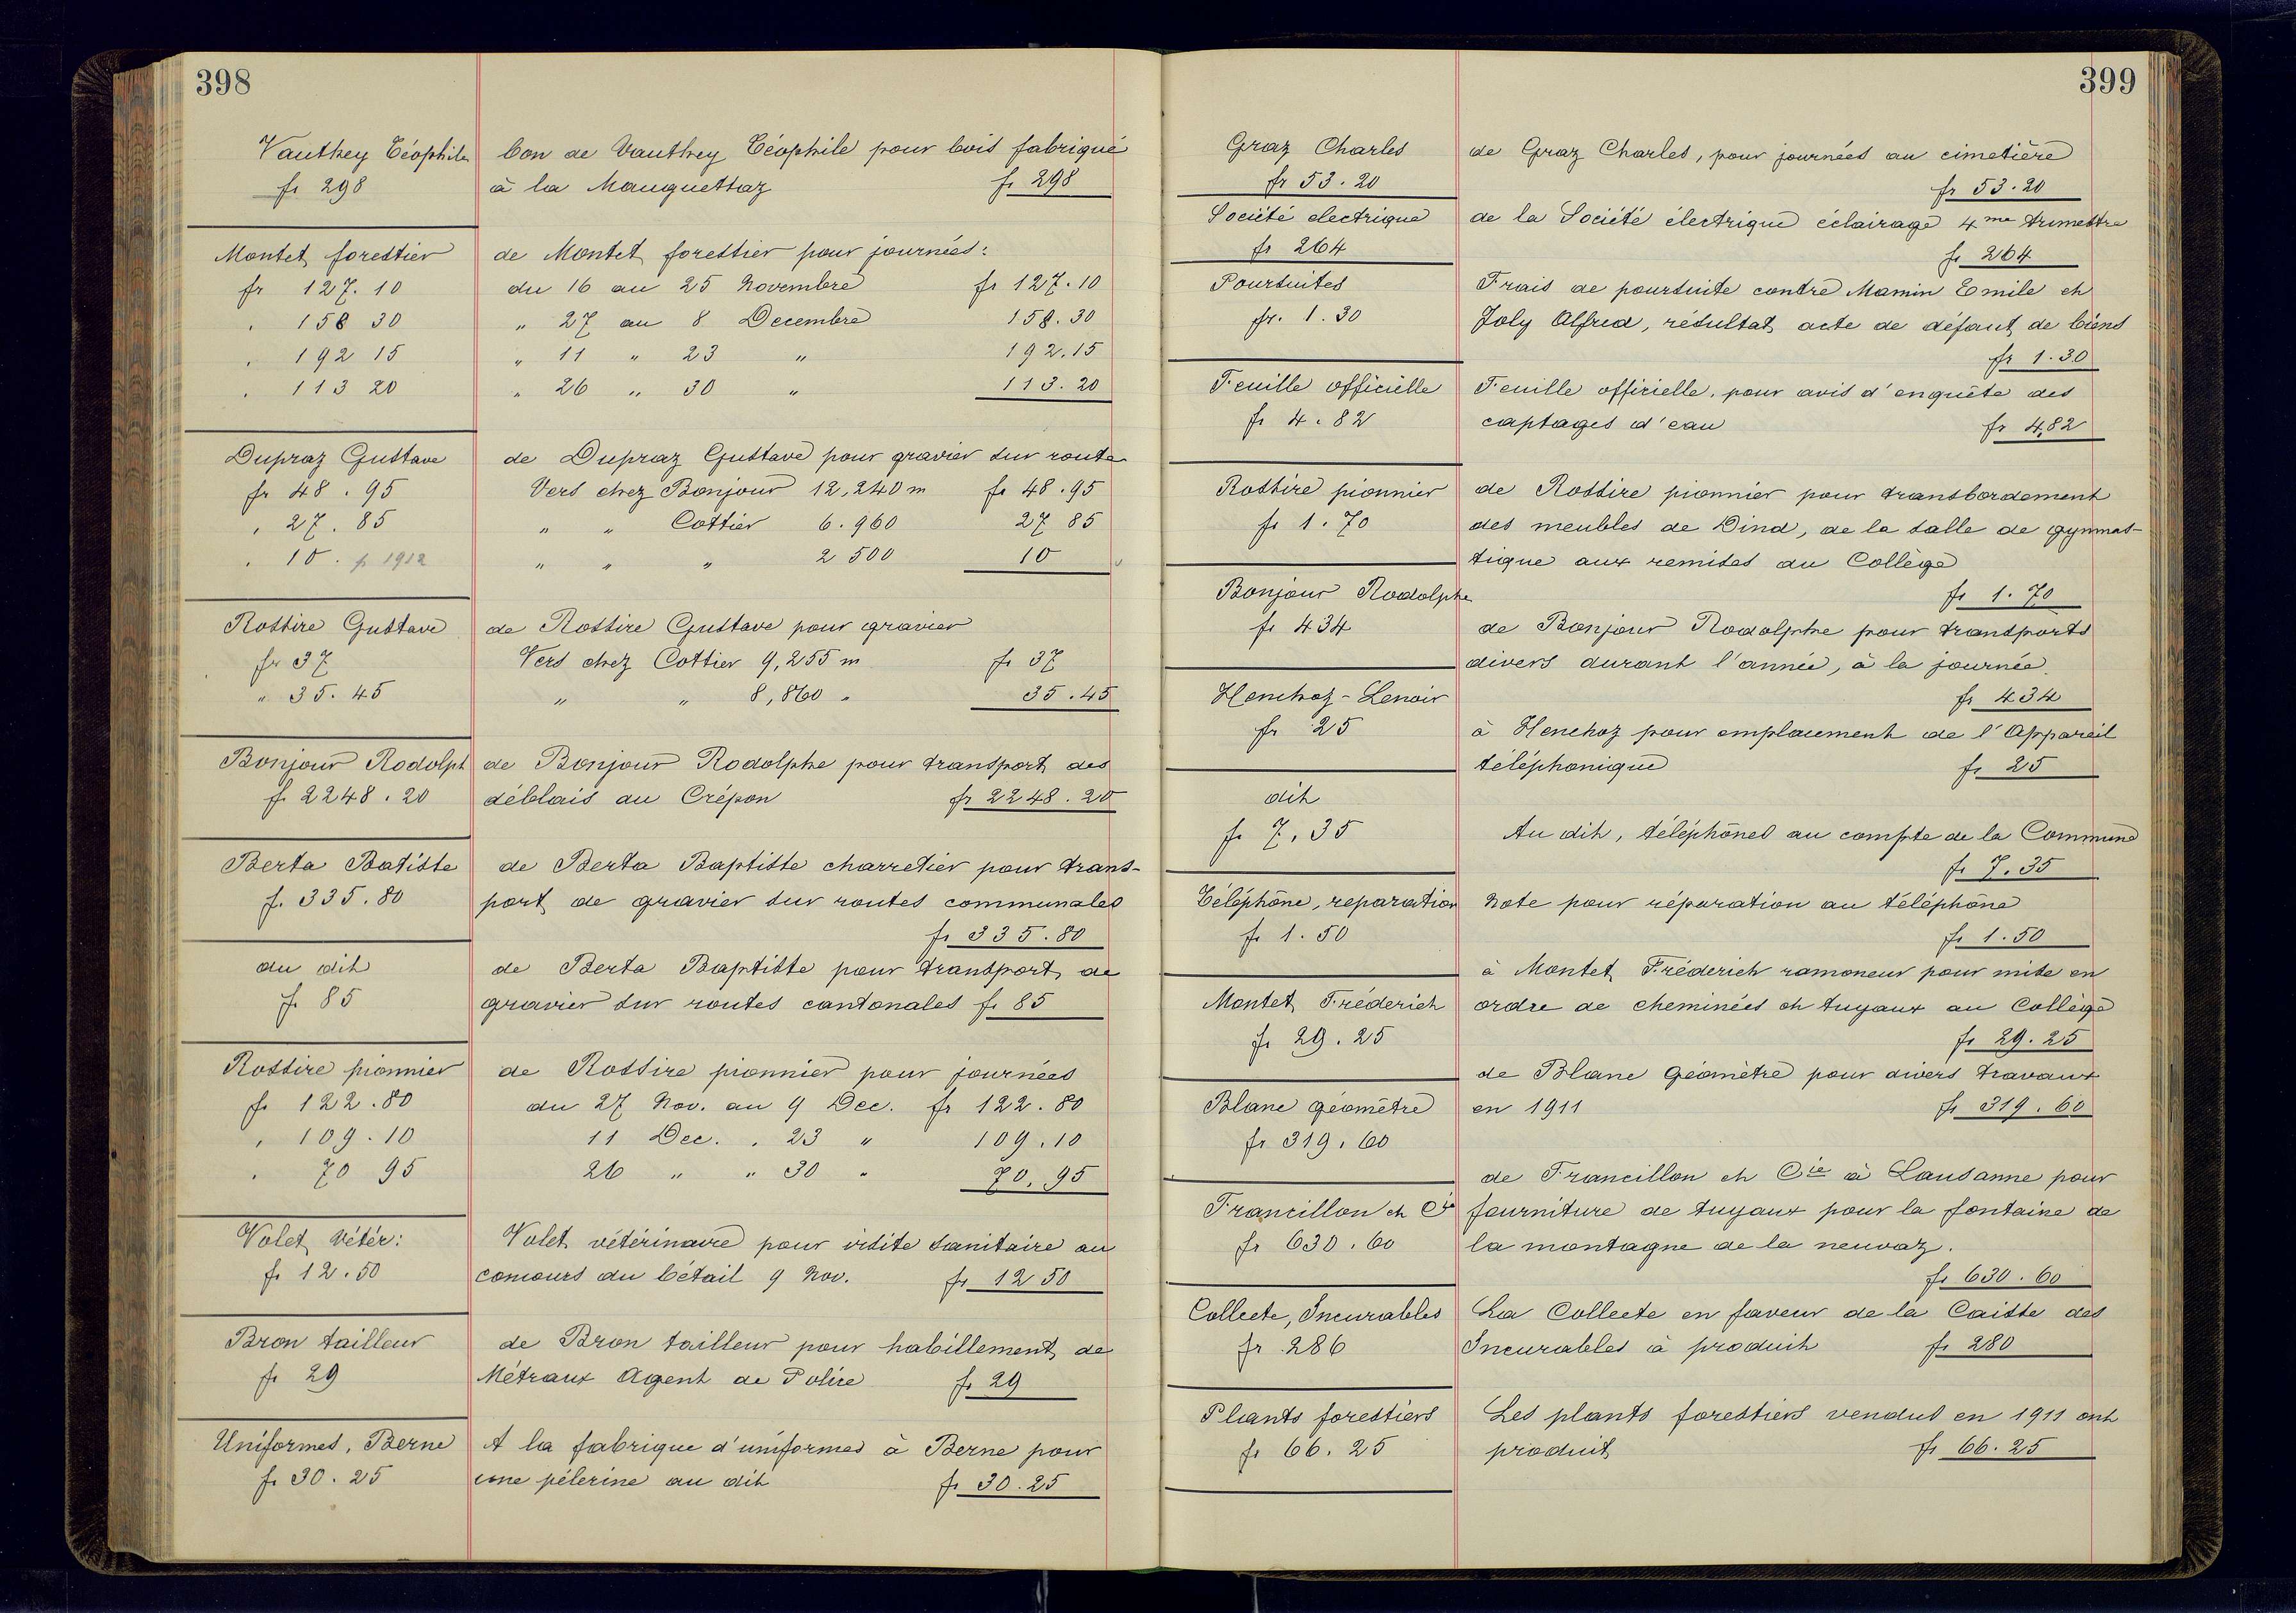 398
Vauthey Téophile
fr 298
bon de Vauthey Téophile pour bois fabriqué
à la Mauguettaz fr 298
Montet forestier
fr 127.10
" 158 30
" 192 15
" 113 20
de Montet forestier pour journées:
du 16 au 25 Novembre fr 127.10
" 27 au 8 Decembre 158.30
" 11 " 23 " 192.15
" 26 " 30 " 113.20
Dupraz Gustave
fr 48.95
" 27.85
" 10. p 1912
de Dupraz Gustave pour gravier sur route
Vers chez Bonjour 12,240 m fr 48.95
" " Cottier 6.960 27 85
" " " 2 500 10
Rossire Gustave
fr 37
" 35.45
de Rossire Gustave pour gravier
Vers chez Cottier 9,255 m fr 37
" " 8,860 " 35.45
Bonjour Rodolph
fr 2248.20
de Bonjour Rodolphe pour transport des
déblais au Crépon fr 2248.20
Berta Batiste
fr. 335.80
de Berta Baptiste charretier pour trans-
port de gravier sur routes communales
fr 335.80
du dit
fr 85
de Berta Baptiste pour transport de
gravier sur routes cantonales fr 85
Rossire pionnier
fr 122.80
" 109.10
" 70 95
de Rossire pionnier pour journées
du 27 Nov. au 9 Dec. fr 122.80
11 Dec. " 23 " 109.10
26 " " 30 " 70.95
Volet vétér:
fr 12.50
Volet vétérinaire pour visite sanitaire au
concours du bétail 9 Nov. fr 12 50
Bron tailleur
fr 29
de Bron tailleur pour habillement de
Métraux Agent de Police fr 29
Uniformes, Berne
fr 30.25
A la fabrique d'uniformes à Berne pour
une pélerine au dit fr 30.25
399
Graz Charles
fr 53.20
de Graz Charles, pour journées au cimetière
fr 53.20
Société electrique
fr 264
de la Société électrique éclairage 4me trimestre
fr 264
Poursuites
fr. 1.30
Frais de poursuite contre Mamin Emile et
Joly Alfred, résultat acte de défaut de biens
fr 1.30
Feuille officielle
fr 4.82
Feuille officielle, pour avis d'enquête des
captages d'eau fr 4.82
Rossire pionnier
fr 1.70
de Rossire pionnier pour transbordement
des meubles de Dind, de la salle de gymnas-
tique aux remises du Collège
fr 1.70
Bonjour Rodolphe
fr 434
de Bonjour Rodolphe pour transports
divers durant l'année, à la journée
fr 434
Henchoz-Lenoir
fr 25
à Henchoz pour emplacement de l'Appareil
téléphonique fr 25
dit
fr 7.35
Au dit, téléphônes au compte de la Commune
fr 7.35
Téléphône, reparation
fr 1.50
Note pour réparation au téléphône
fr 1.50
Montet Fréderich
fr 29.25
à Montet Fréderich ramoneur pour mise en
ordre de cheminées et tuyaux au Collège
fr 29.25
Blanc géomètre
fr 319.60
de Blanc Géomètre pour divers travaux
en 1911 fr 319.60
Francillon et Cie
fr 630.60
de Francillon et Cie à Lausanne pour
fourniture de tuyaux pour la fontaine de
la montagne de la neuvaz.
fr 630.60
Collecte, Incurables
fr 286
La Collecte en faveur de la Caisse des
Incurables à produit fr 280
Plants forestiers
fr 66.25
Les plants forestiers vendus en 1911 ont
produit fr 66.25